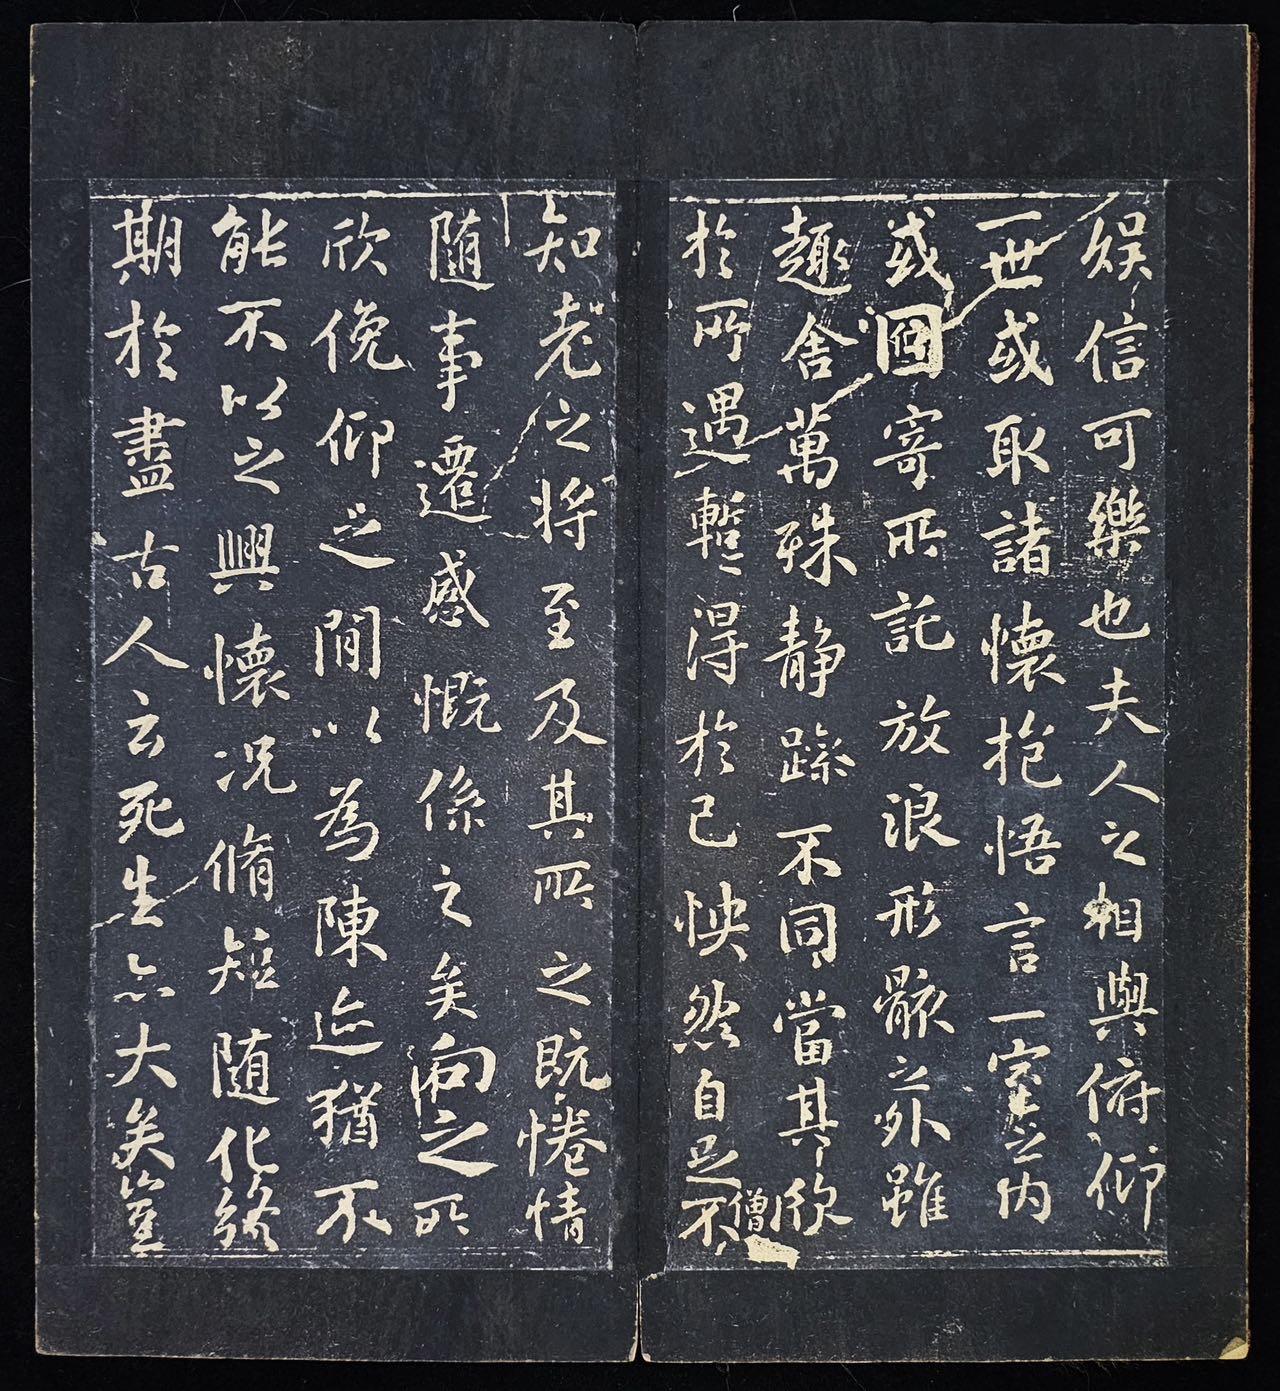 娱信可樂也夫人之相與俯仰
一世或取諸懷抱悟言一室之内
或因寄所託放浪形骸之外雖
趣舍萬殊静躁不同當其欣
於所遇暫得於己怏然自足不
僧
知老之將至及其所之既惓情
随事遷感慨係之矣向之所
欣俛仰之間以為陳迹猶不
能不以之興懷况脩短随化終
期於盡古人云死生亦大矣豈